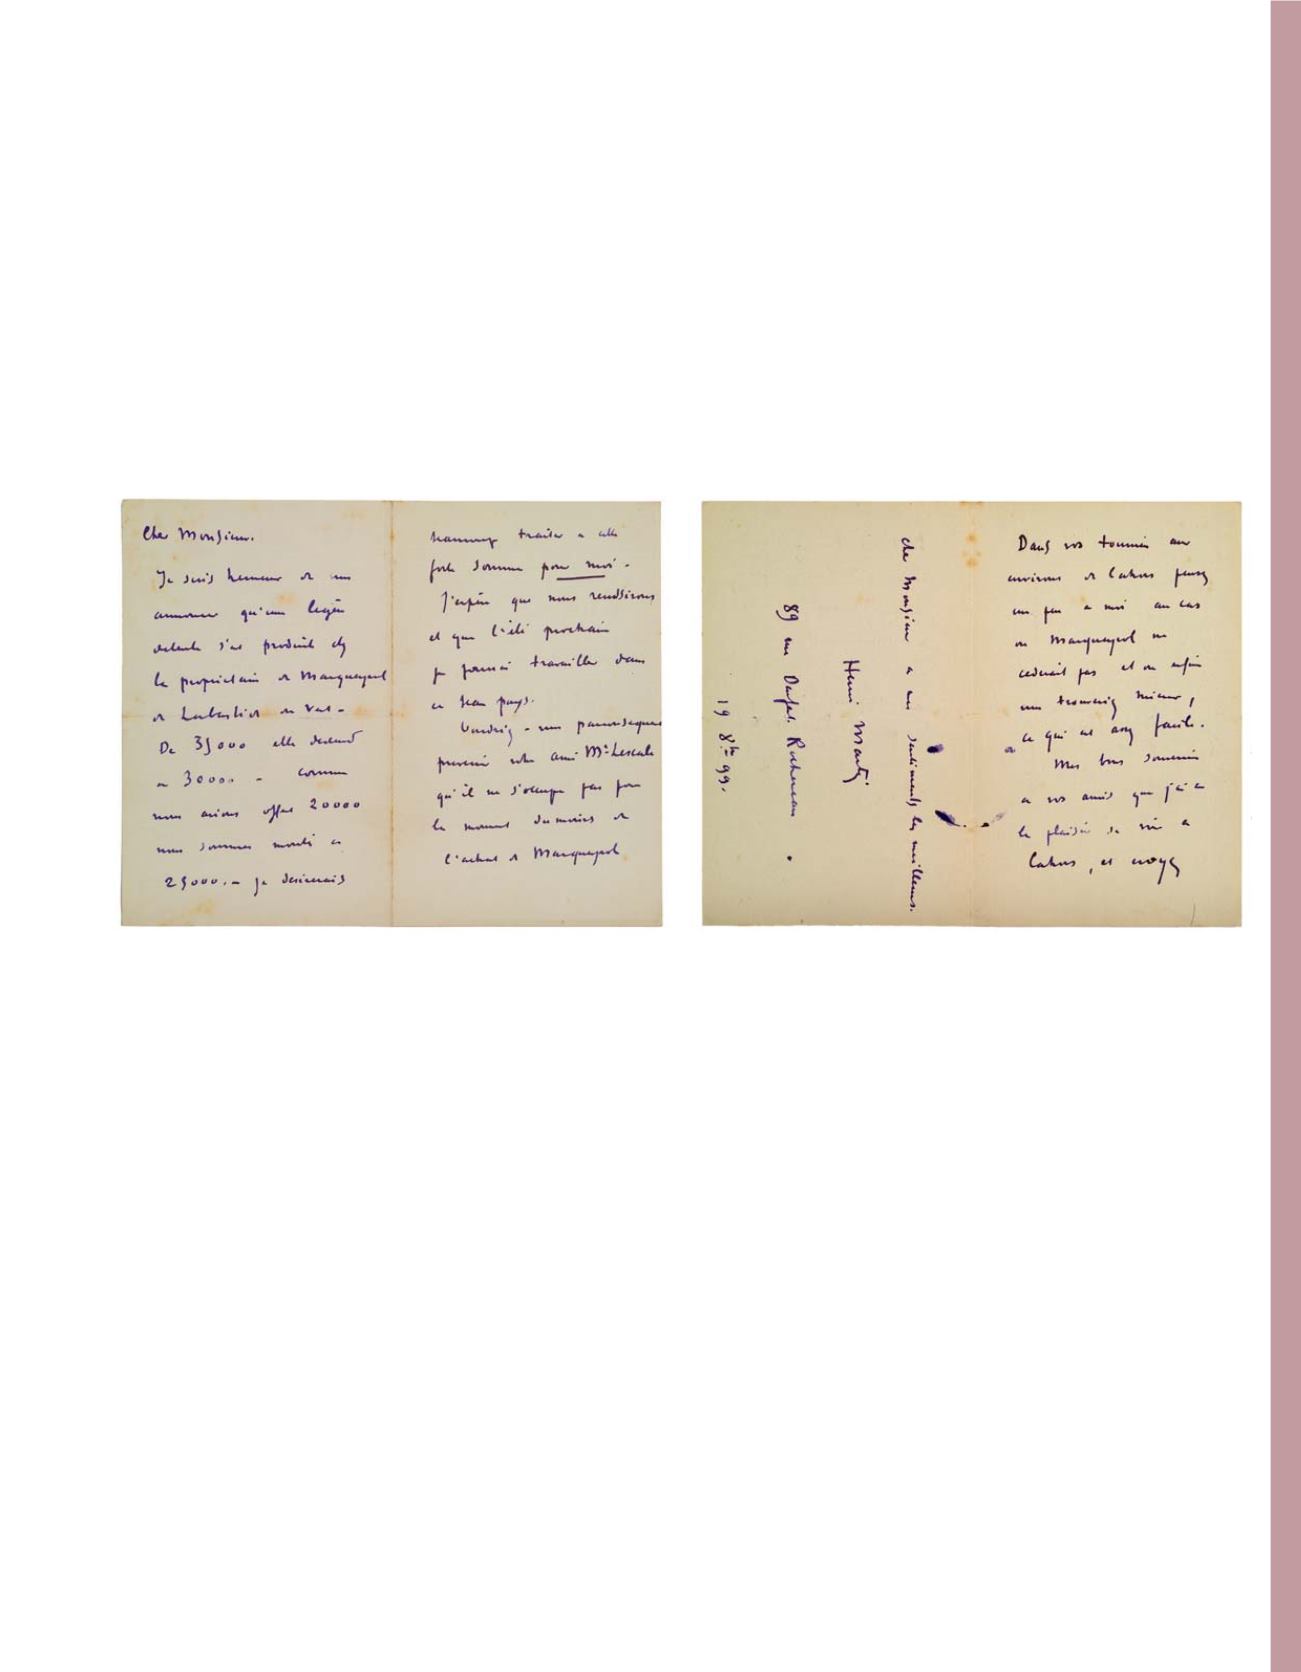 Cher Monsieur.
Je suis heureux de vous
annoncer qu'une légère
détente s'est produite chez
la propriétaire de Marquayrol
de Labastide du Vert -
De 35000 elle descend
à 30000 - comme
nous avions offert 20000
nous sommes montés à
25000. - Je désirerais
traiter à cette
forte somme pour moi -
J'espère que nous réussirons
et que l'été prochain
je pourrai travailler dans
ce beau pays.
Voudriez - vous
prévenir votre ami Mr Lescale
qu'il ne s'occupe pas pour
le moment du moins de
l'achat de Marquayrol
Dans vos tournées aux
environs de Cahors pensez
un peu à moi au cas
où Marquayrol ne
cèderait pas et où enfin
vous trouveriez mieux,
ce qui est assez facile.
Mes bons souvenirs
à vos amis que j'ai eu
le plaisir de voir à
Cahors, et croyez
cher Monsieur à mes sentiments les meilleurs.
Henri Martin
89 rue Denfert Rochereau
19 8bre 99.